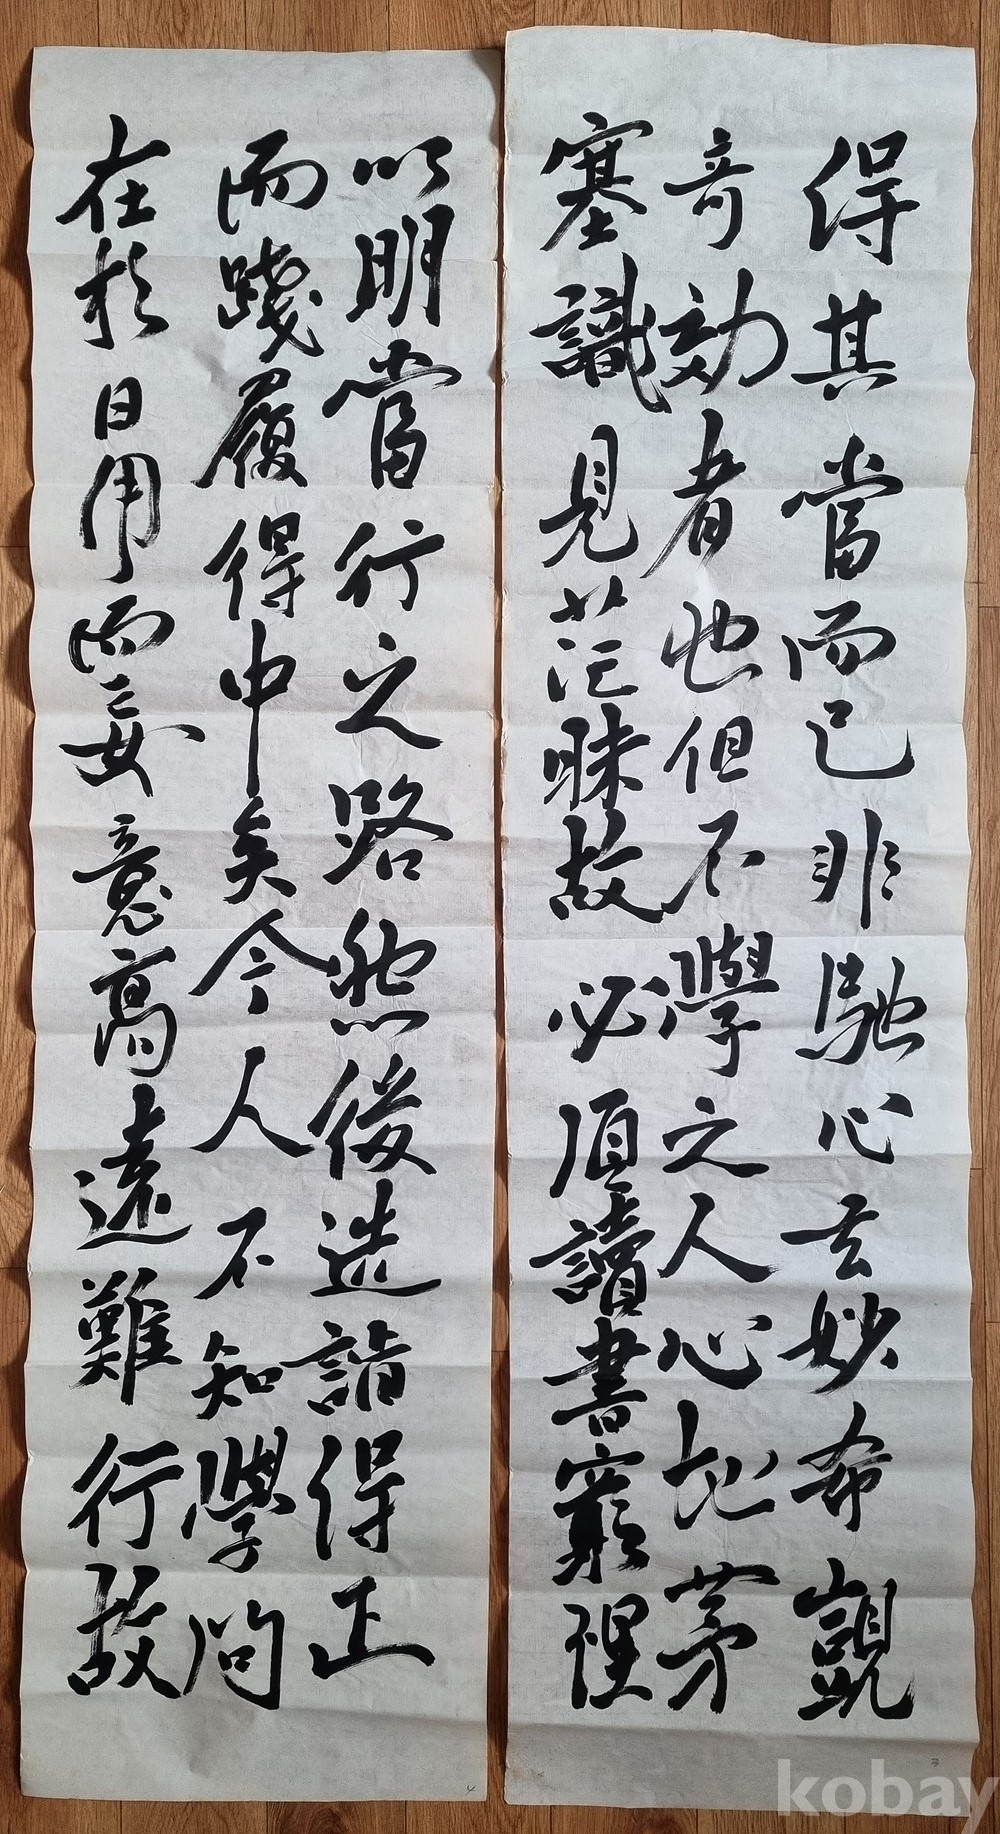 得其當而已非馳心玄妙希覬
奇効者也但不學之人心地茅
塞識見茫昧故必須讀書窮理
以明當行之路然後造詣得正
而踐履得中矣今人不知學問
在於日用而妄意高遠難行故
kobay